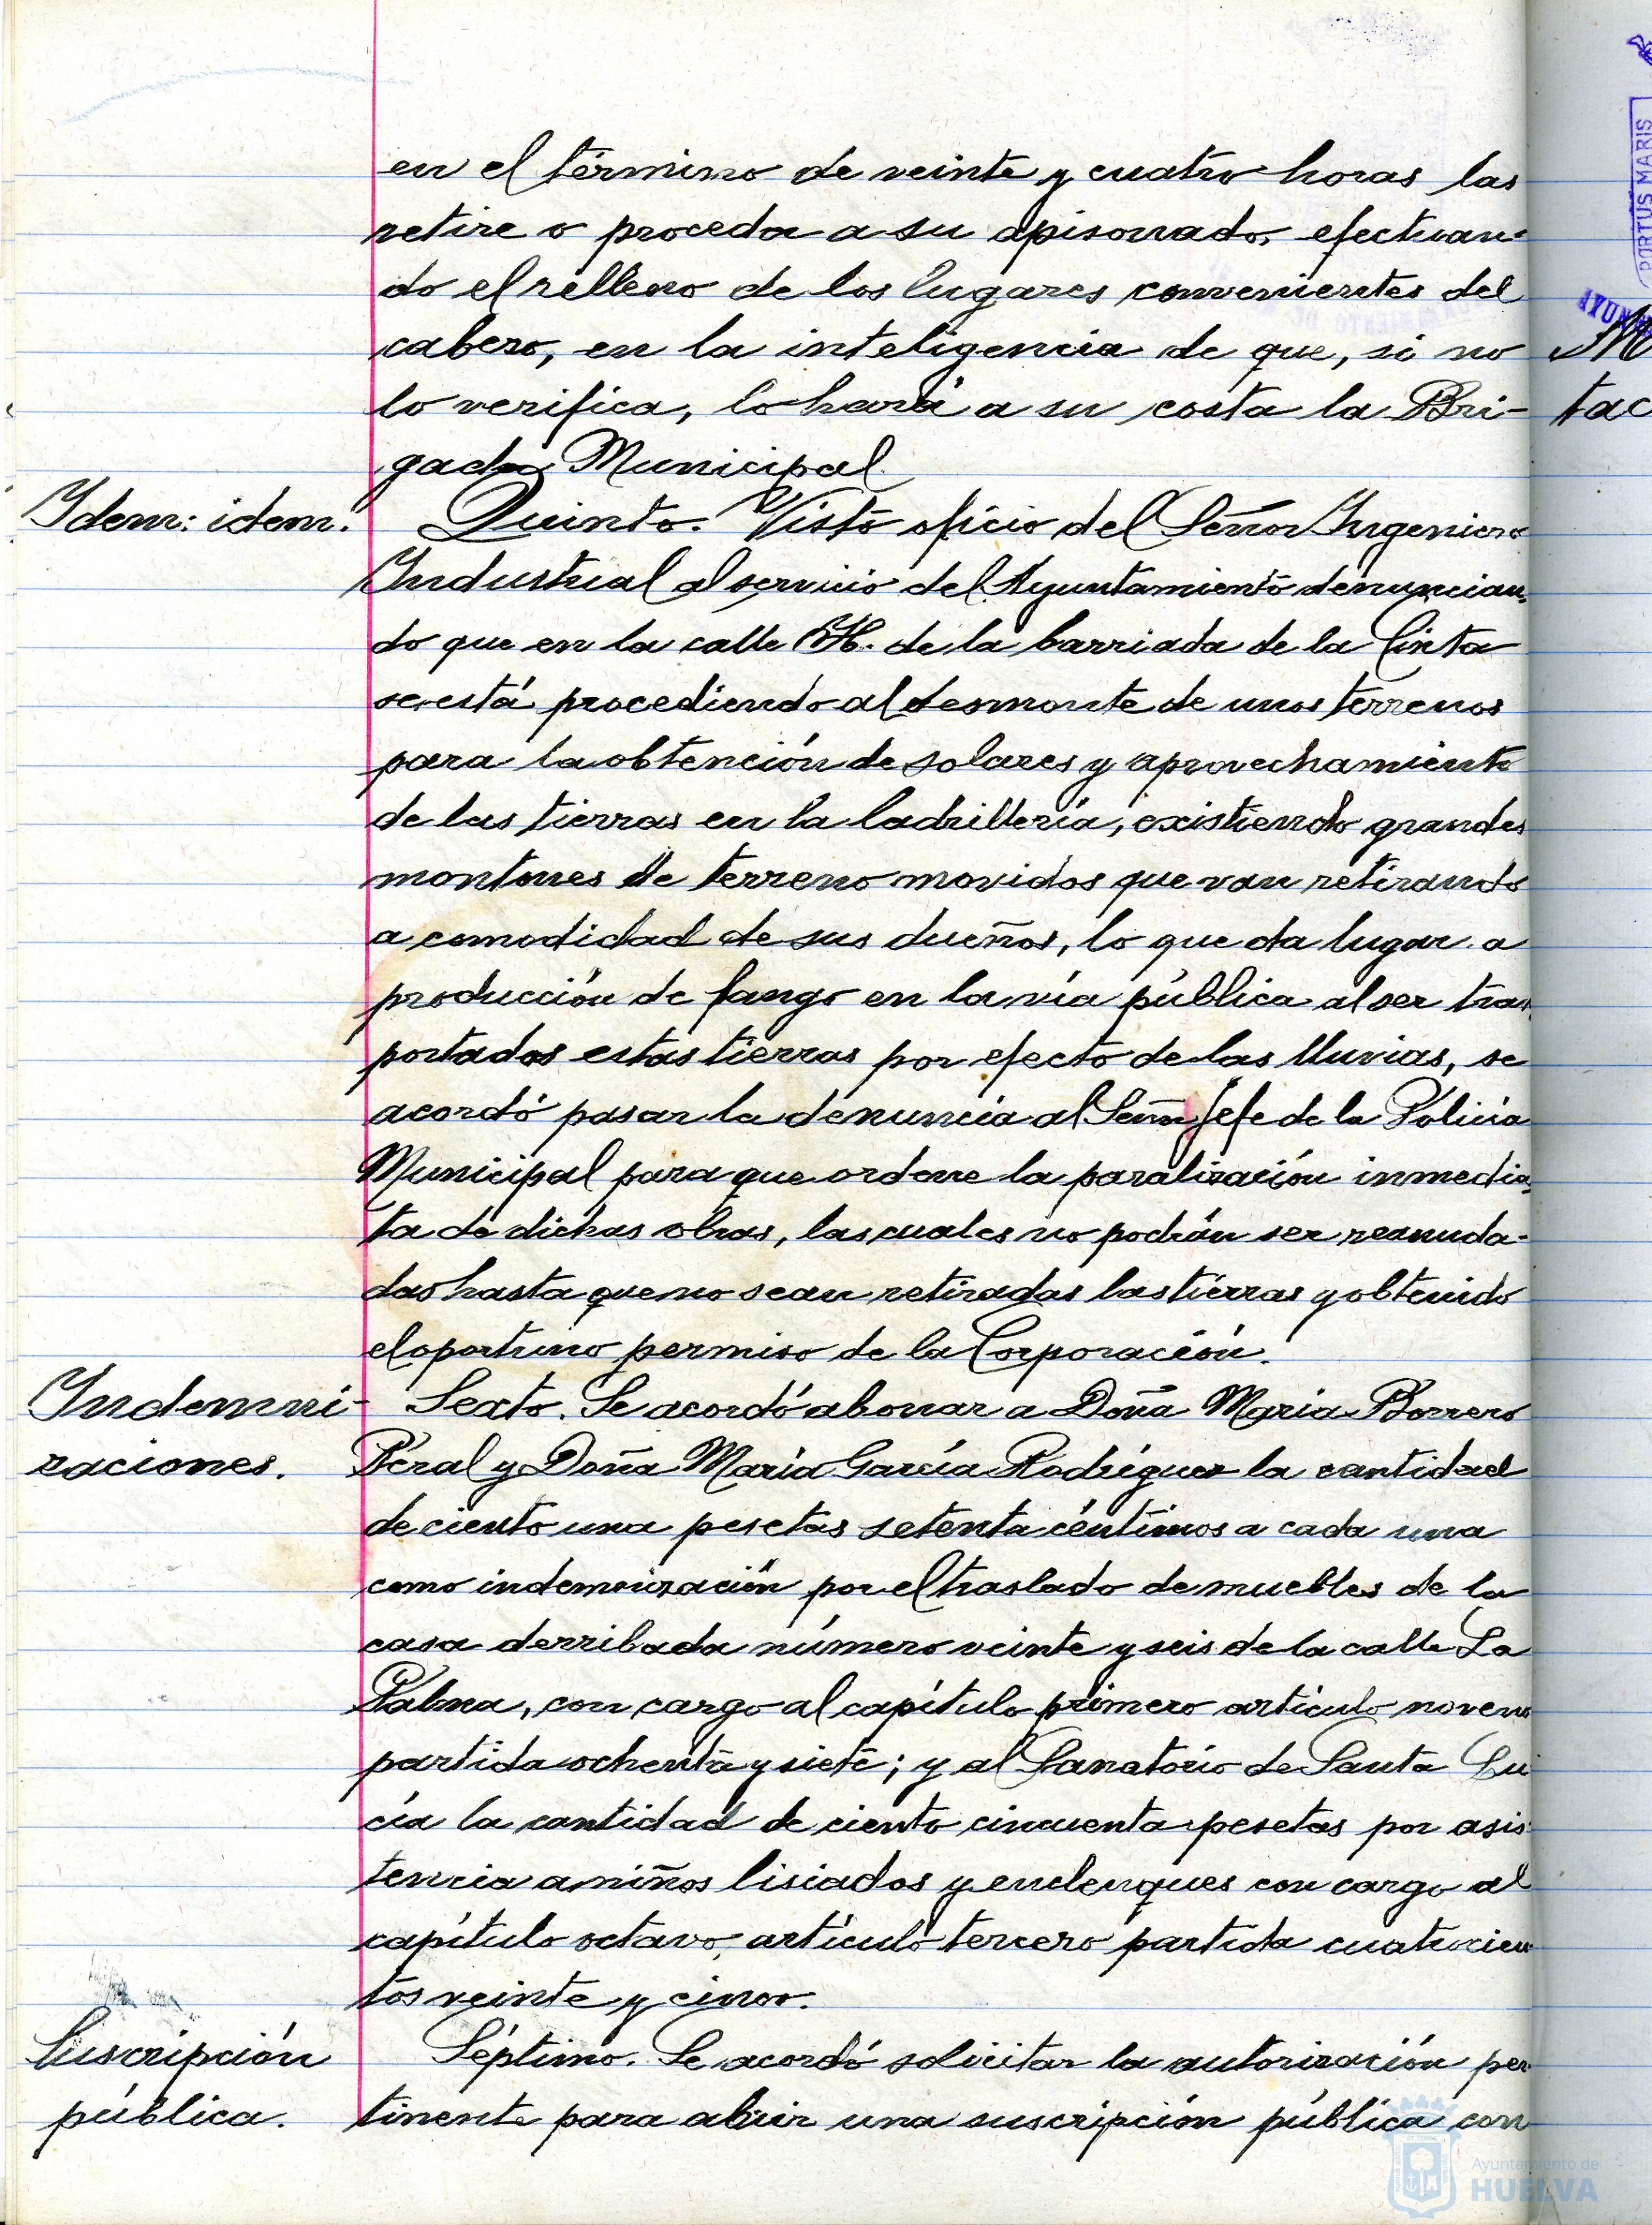 en el término de veinte y cuatro horas las
retire o proceda a su apisonado, efectuan-
do el relleno de los lugares convenientes del
cabezo, en la inteligencia de que, si no
lo verifica, lo hará a su costa la Bri-
gada Municipal
Idem: idem.
Quinto. Visto oficio del Señor Ingeniero
Industrial al servicio del Ayuntamiento denuncian-
do que en la calle H. de la barriada de la Cinta
se está procediendo al desmonte de unos terrenos
para la obtención de solares y aprovechamiento
de las tierras en la ladrillería, existiendo grandes
montones de terreno movidos que van retirando
a comodidad de sus dueños, lo que da lugar a
producción de fango en la vía pública al ser tras
portados estas tierras por efecto de las lluvias, se
acordó pasar la denuncia al Señor Jefe de la Policía
Municipal para que ordene la paralización inmedia-
ta de dichas obras, las cuales no podrán ser reanuda-
das hasta que no sean retiradas las tierras y obtenido
el oportuno permiso de la Corporación.
Indemni-
zaciones.
Sexto. Se acordó abonar a Doña Maria Borrero
Peral y Doña María García Rodríguez la cantidad
de ciento una pesetas setenta céntimos a cada una
como indemnización por el traslado de muebles de la
casa derribada número veinte y seis de la calle La
Palma, con cargo al capítulo primero artículo noveno
partida ochenta y siete; y al Sanatorio de Santa Lu
cía la cantidad de ciento cincuenta pesetas por asis-
tencia a niños lisiados y enclenques con cargo al
capítulo octavo, artículo tercero partida cuatrocien
tos veinte y cinco.
Suscripción
pública.
Séptimo. Se acordó solicitar la autorización per
tinente para abrir una suscripción pública con
PORTUS MARIS
tac
Ayuntamiento de
HUELVA